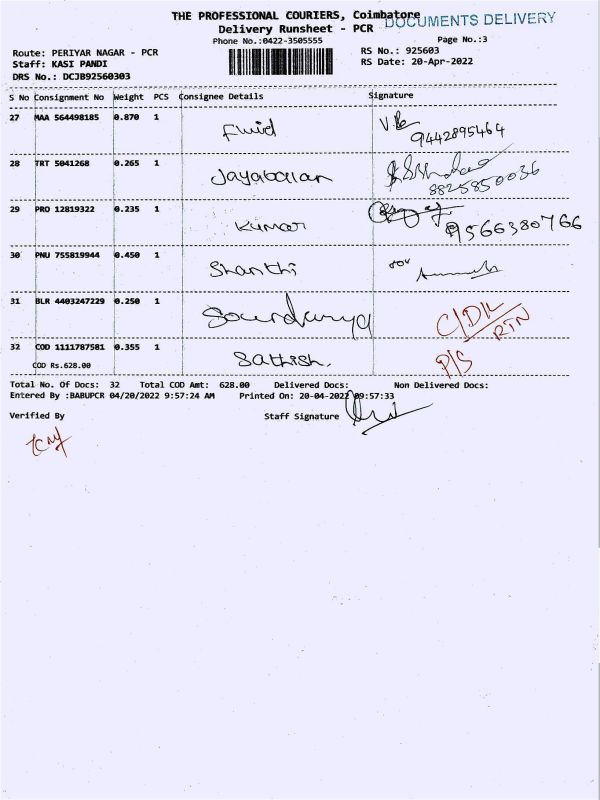 THE PROFESSIONAL COURIERS, Coimbatore
DOCUMENTS DELIVERY
Delivery Runsheet - PCR
Phone No.:0422-3505555
Page No.:3
Route: PERIYAR NAGAR - PCR
RS No.: 925603
Staff: KASI PANDI
RS Date: 20-Apr-2022
DRS No.: DCJB92560303
S No Consignment No Weight PCS Consignee Details Signature
27 MAA 564498185 0.870 1 Fluid
9442895464
28 TRT 5041268 0.265 1 Jayabalan
8825850036
29 PRO 12819322 0.235 1 Kumar 9566380766
30 PNU 755819944 0.450 1 Shanthi
31 BLR 4403247229 0.250 1 Soundarya C/DL
RTN
32 COD 1111787581 0.355 1 Sathish. P/S
COD Rs.628.00
Total No. Of Docs: 32 Total COD Amt: 628.00 Delivered Docs: Non Delivered Docs:
Entered By :BABUPCR 04/20/2022 9:57:24 AM Printed On: 20-04-2022 09:57:33
Verified By Staff Signature